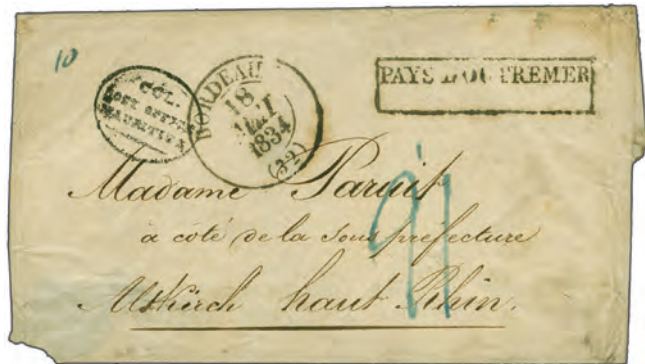 10
COL.
POST OFFICE
MAURITIUS
BORDEAUX
18
1834
(32)
PAYS D'OUTREMER
Madame
à côté de la sous préfecture
Altkirch haut Rhin.